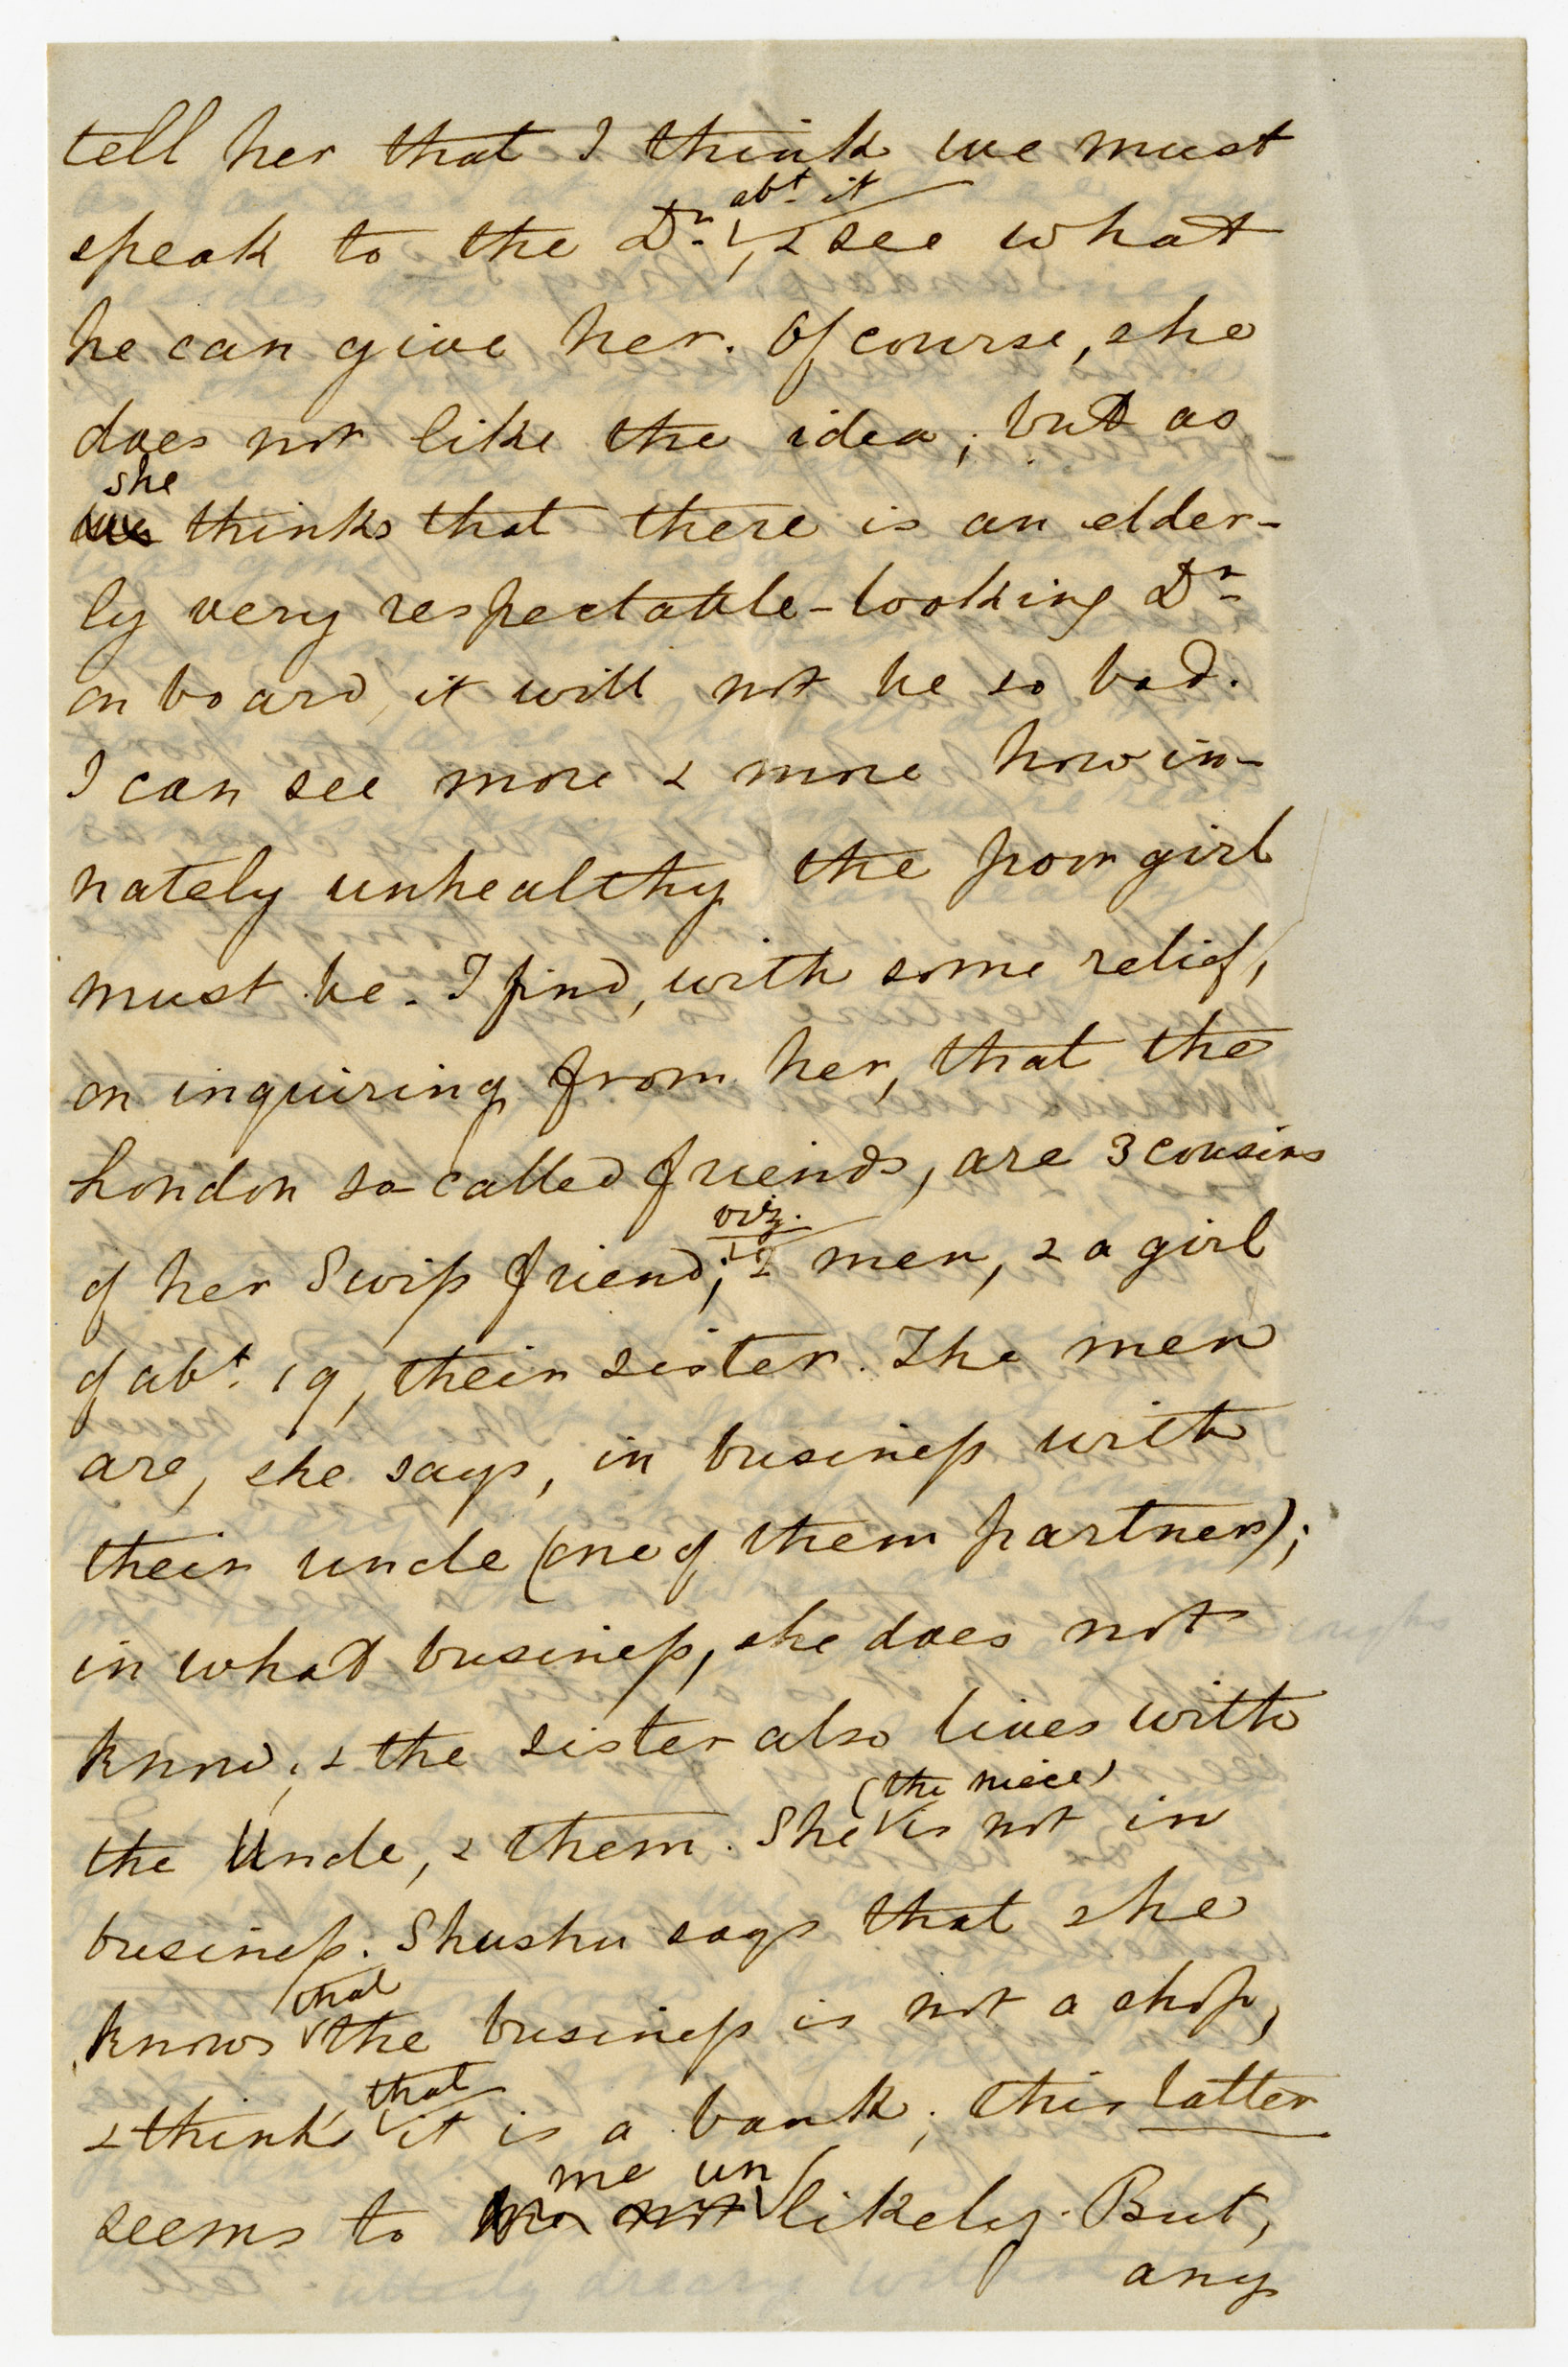 tell her that I think we must
speak to the Dr. abt. it, & see what
he can give her. Of course, she
does not like the idea; but as
she thinks that there is an elder-
ly very respectable-looking Dr.
on board, it will not be so bad.
I can see more & more how in-
nately unhealthy the poor girl
must be. I find, with some relief,
on inquiring from her, that the
London so-called friends, are 3 cousins
of her Swiss friend; viz. 2 men, & a girl
of abt. 19, their sister. The men
are, she says, in business with
their uncle (one of them partner);
in what business, she does not
know; & the sister also lives with
the Uncle, & them. She (the niece) is not in
business. Shushu says that she
knows that the business is not a shop,
& thinks that it is a bank; this latter
seems to me unlikely. But,
any